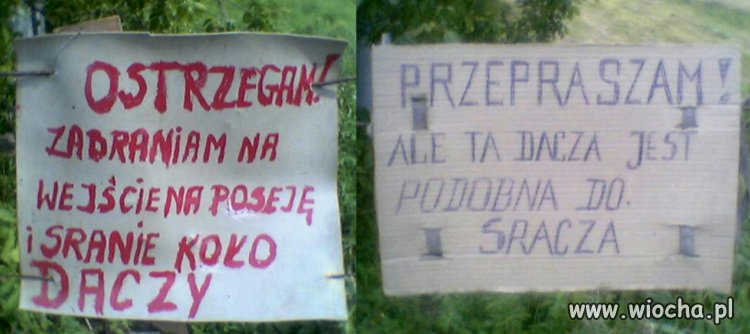 OSTRZEGAM!
ZABRANIAM NA
WEJŚCIE NA POSEJĘ
i SRANIE KOŁO
DACZY
PRZEPRASZAM!
ALE TA DACZA JEST
PODOBNA DO.
SRACZA
www.wiocha.pl